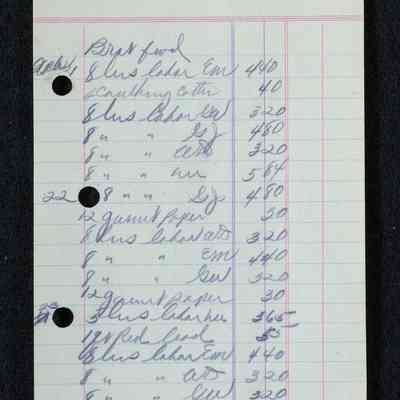 Brot food
8 hrs labor EM 440
caulking cotton 40
8 hrs labor GW 320
8 " " GJ 480
8 " " AW 320
8 " " 584
22 8 " " GJ 480
12 garnet paper 30
8 hrs labor AW 320
8 " " EM 440
8 " " GW 320
12 garnet paper 30
3 hrs labor 365
19# Red Lead 55
8 hrs labor EM 440
8 " " AW 320
8 " " GW 320